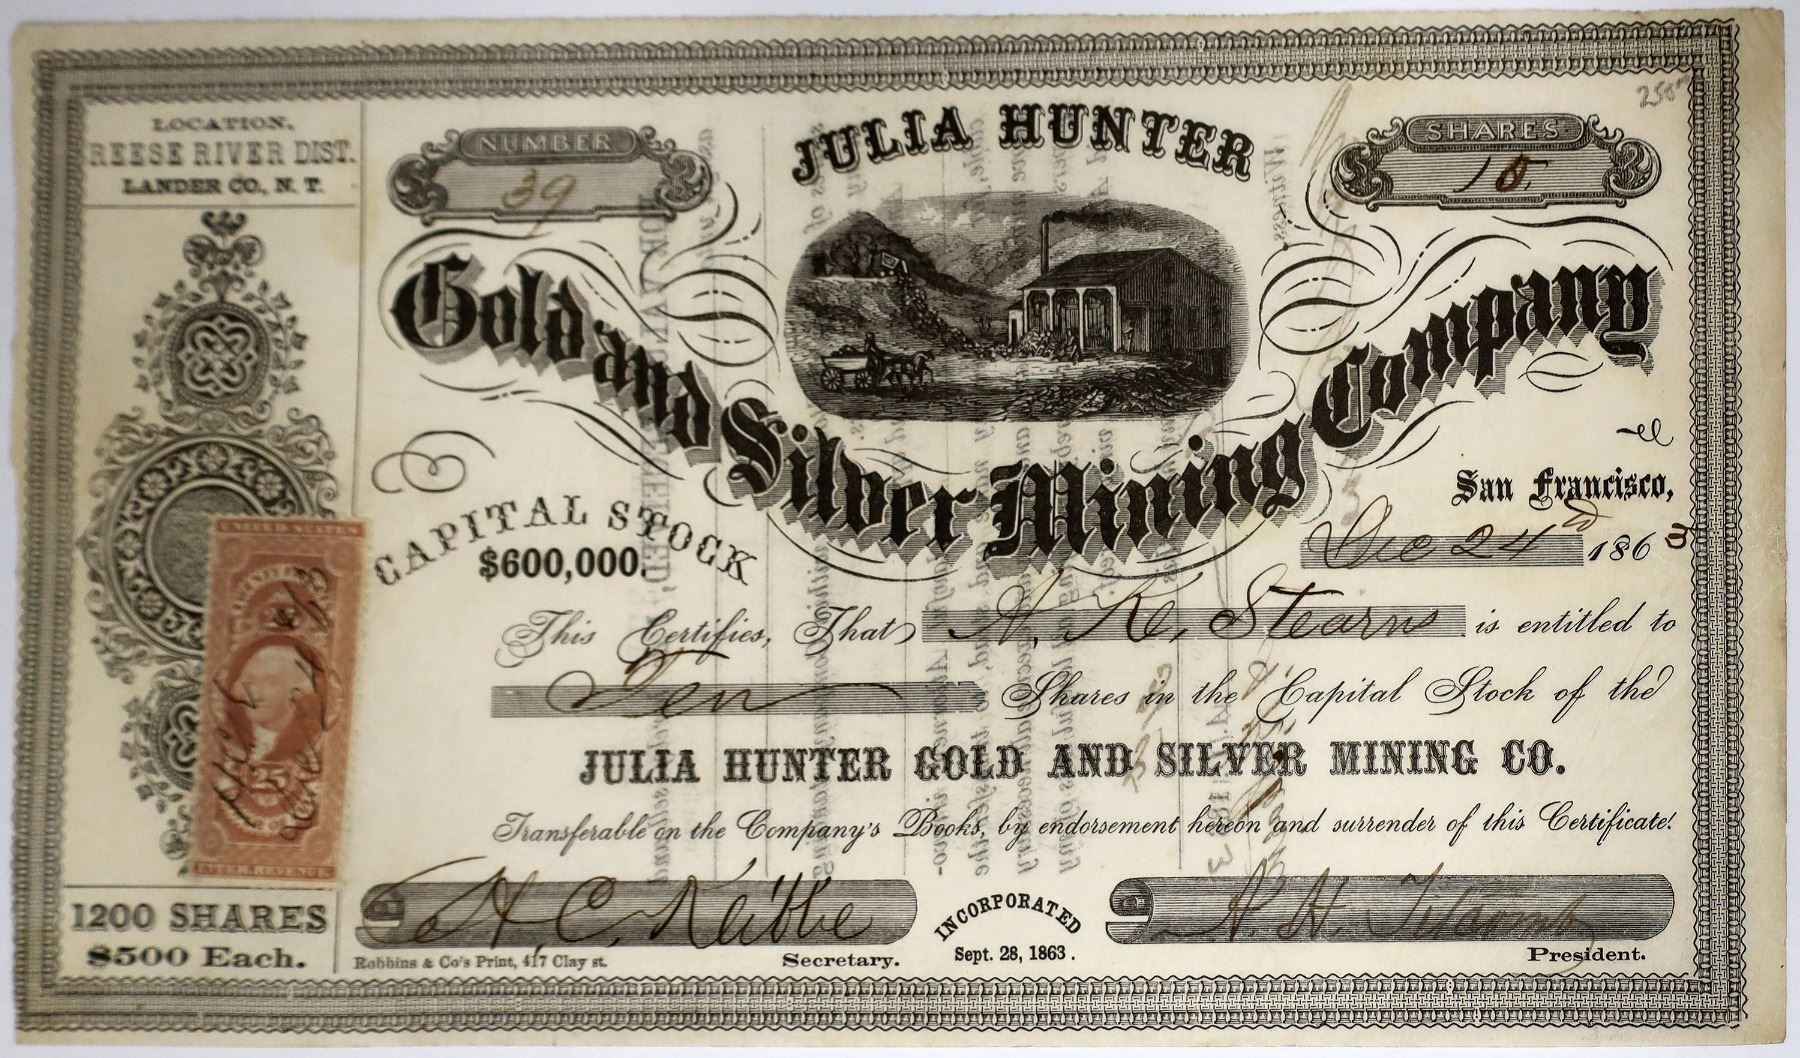 LOCATION.
REESE RIVER DIST.
LANDER CO., N. T.
NUMBER
39
JULIA HUNTER
SHARES
10
250
Gold and Silver Mining Company
CAPITAL STOCK
$600,000.
San Francisco,
Dec 24 1863
This Certifies, That A. K. Stearns is entitled to
Ten Shares in the Capital Stock of the
JULIA HUNTER GOLD AND SILVER MINING CO.
Transferable on the Company's Books, by endorsement hereon and surrender of this Certificate.
UNITED STATES
25
INTER. REVENUE
1200 SHARES
$500 Each.
H C Kibbe
Secretary.
INCORPORATED
Sept. 28, 1863.
President.
Robbins & Co's Print, 417 Clay st.